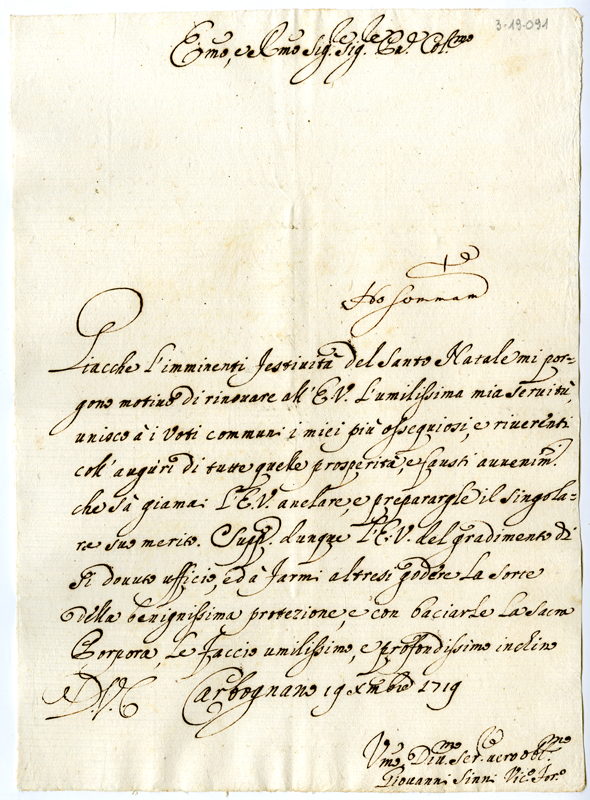 3-19-091
Emo, e Rmo Sig.re Sig.re Pad. Col.mo
Giacche l'imminenti festiuità del Santo Natale mi por-
gono motiuo di rinouare all'E.V. l'umilissima mia seruitù
unisco à i voti communi i miei più ossequiosi, e riuerenti
coll'auguri di tutte quelle prosperità, e fausti auuenim.
che sà giamai l'E.V. anelare, e prepararle il singola-
re suo merito. Supp. dunque l'E.V. del gradimento di
si douuto uffizio, ed à farmi altresi godere la sorte
della benignissima protezione, e con baciarle la sacra
Porpora, le faccio umilissimo, e profondissimo inchino
D.V.E. Carbognano 19 Xmbre 1719
Vmo Diu.mo Ser. uero obl.mo
Giouanni Sinni Vic. for.o